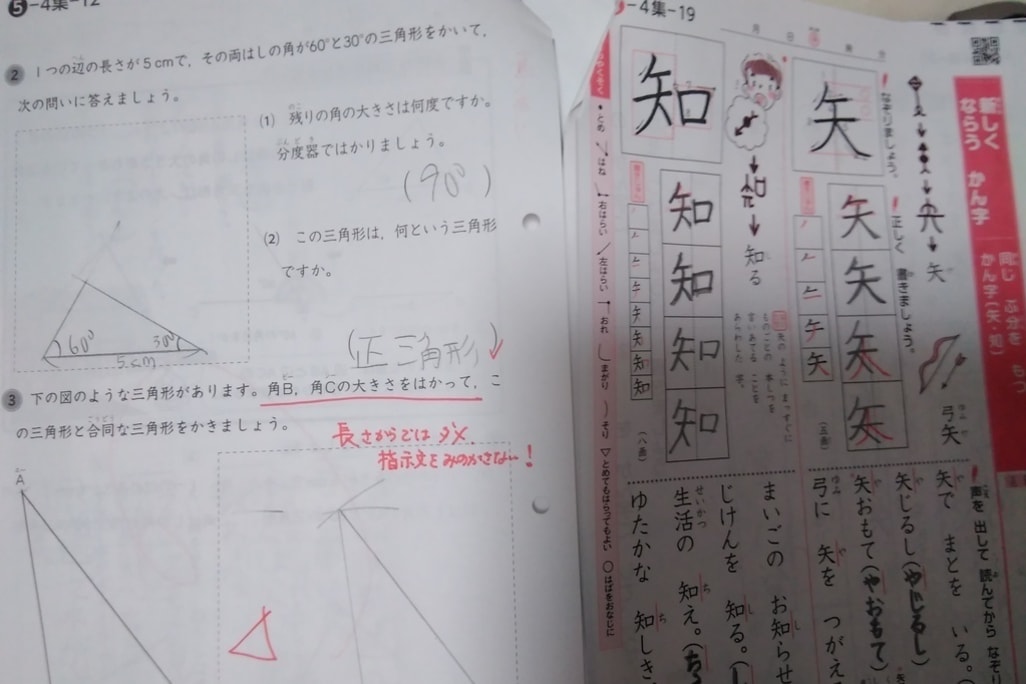 ❺-4集-12
2 1つの辺の長さが5cmで，その両はしの角が60°と30°の三角形をかいて，
次の問いに答えましょう。
(1) 残りの角の大きさは何度ですか。
分度器ではかりましょう。
(90°)
(2) この三角形は，何という三角形
ですか。
(正三角形)
60°
30°
5cm
3 下の図のような三角形があります。角B，角Cの大きさをはかって，こ
の三角形と合同な三角形をかきましょう。
長さからでは ダメ.
指示文をみのがさない！
A
-4集-19
月 日
分
新しく
ならう かん字
同じ ぶ分を もつ
かん字（矢・知）
矢
弓矢
なぞりましょう。
正しく 書きましょう。
矢
矢
矢
矢
矢
(五画)
知る
矢のように まっすぐに
ものごとの 本しつを
言いあてる ことを
あらわした 字。
知
知
知
知
知
(八画)
とめ はね 右はらい 左はらい おれ まがり そり ▽とめてもはらってもよい ○はばをおなじに
声を 出して 読んでから なぞり
矢で まとを いる。
矢じるし(やじるし)
矢おもて(やおもて)
弓に 矢を つがえ
まいごの お知らせ
じけんを 知る。
生活の 知え。
ゆたかな 知しき